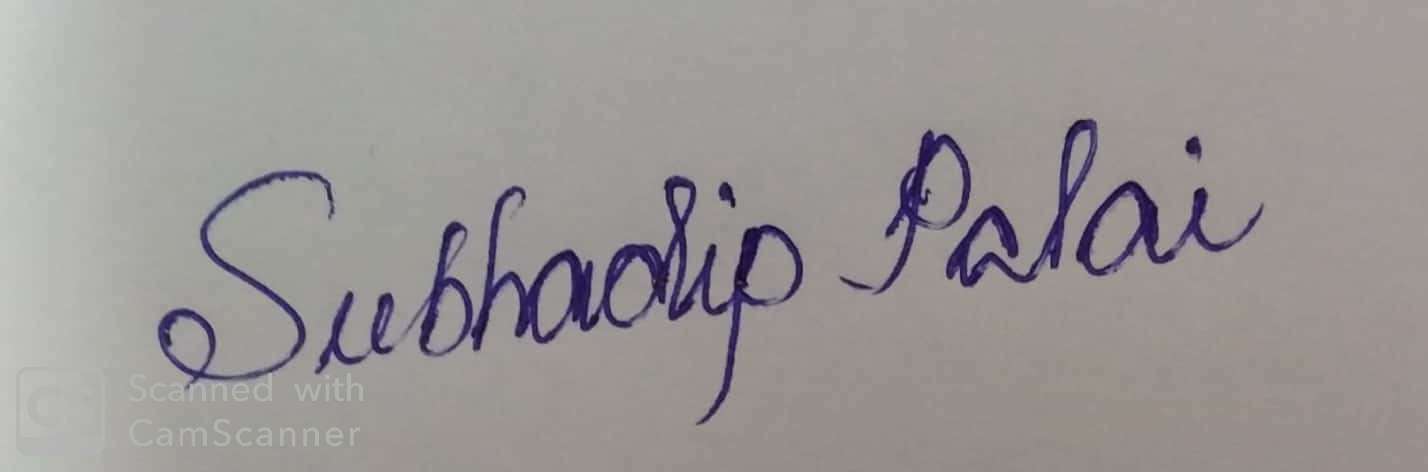 Subhadip Palai
Scanned with
CamScanner